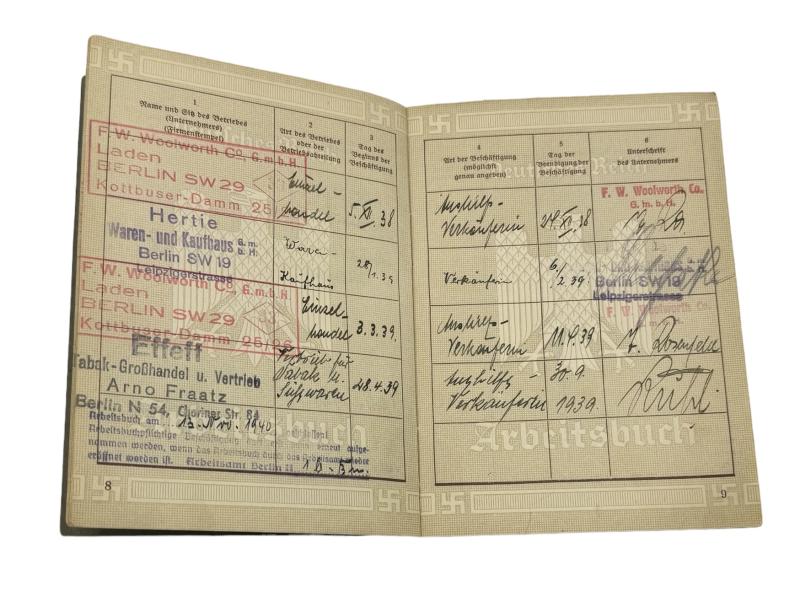 1
Name und Sitz des Betriebes
(Unternehmers)
(Firmenstempel)
2
Art des Betriebes
oder der
Betriebsabteilung
3
Tag des
Beginns der
Beschäftigung
F. W. Woolworth Co. G.m.b.H.
Laden
BERLIN SW 29
Kottbuser-Damm 25/26
Einzel-
handel
5. XII. 38
Hertie
Waren- und Kaufhaus G.m.b.H.
Berlin SW 19
Leipzigerstrasse
Waren-
Kaufhaus
28/1.39
F. W. Woolworth Co. G.m.b.H.
Laden
BERLIN SW 29
Kottbuser-Damm 25/26
Einzel-
handel
3.3.39.
Effeff
Tabak-Großhandel u. Vertrieb
Arno Fraatz
Berlin N 54, Gloriner Str. 84
Vertrieb für
Tabak u.
Süßwaren
28.4.39
Arbeitsbuch am 13. Nov. 1940
Arbeitsbuchpflichtige Beschäftigung erneut aufge-
nommen werden, wenn das Arbeitsbuch durch das Arbeitsamt wieder
eröffnet worden ist. Arbeitsamt Berlin
8
4
Art der Beschäftigung
(möglichst
genau angeben)
5
Tag der
Beendigung der
Beschäftigung
6
Unterschrift
des Unternehmers
Deutsches Reich
Aushilfs-
Verkäuferin
24. XII. 38
F. W. Woolworth Co.
G. m. b. H.
Verkäuferin
6./2 39
Berlin SW 19
Leipzigerstrasse
Aushilfs-
Verkäuferin
11.4.39
F. W. Woolworth Co.
G. m. b. H.
Z. Rosenfeld
Aushilfs-
Verkäuferin
30.9.
1939.
Arbeitsbuch
9